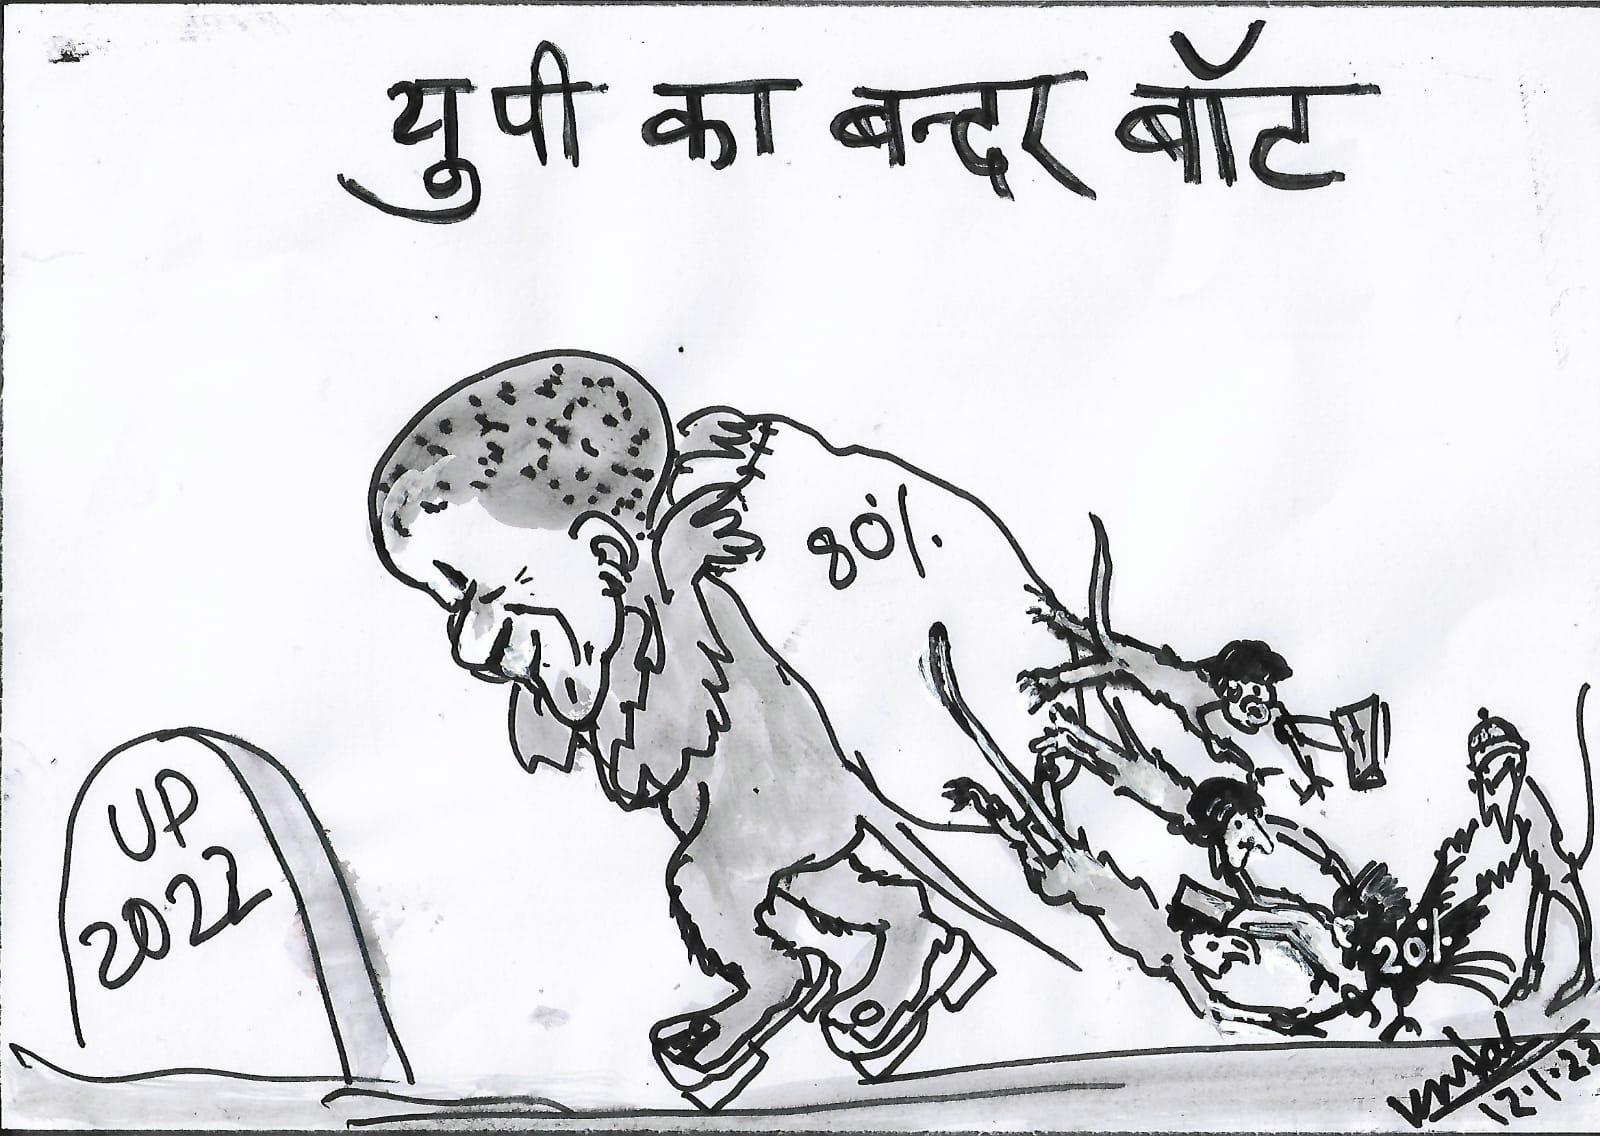 यु पी का बन्दर बॉट
80%.
UP
2022
20%
12.1.22